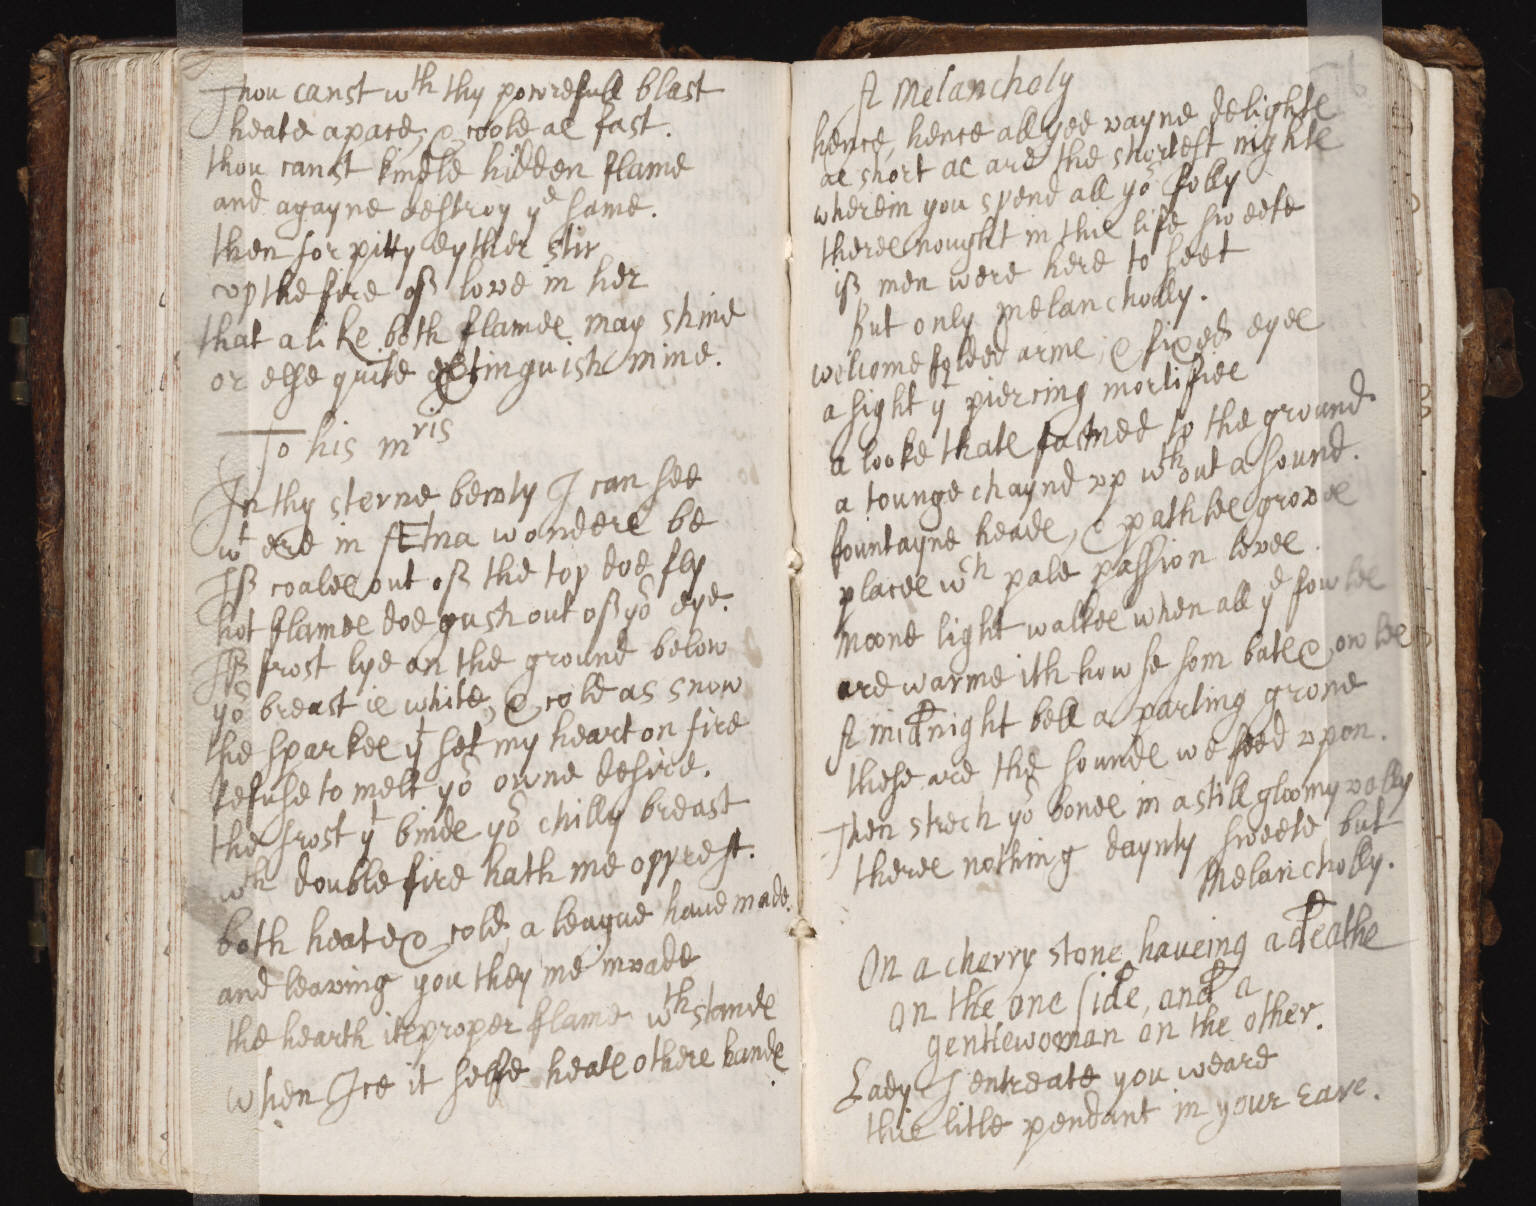 Thou canst wth thy powrefull blast
heate apace, & coole as fast.
thou canst kindle hidden flame
and agayne destroy ye same.
then for pitty eyther stir
vp the fire of love in her
that alike both flames may shine
or else quite extinguish mine.
To his mris
In thy sterne bewty I can see
wt ere in Ætna wonders be
If coales out of the top doe fly
hot flames doe gush out of yor eye.
If frost lye on the ground below
yor breast is white, & cold as snow
the sparkes yt set my heart on fire
refuse to melt yor owne desire.
the frost yt binds yor chilly breast
wth double fire hath me opprest.
both heate & cold a league haue made
and leaving you they me invade
the hearth its proper flame wthstands
when Ice it selfe heats others hands
A Melancholy
hence, hence all yee vayne delights
as short as are the shortest nights
wherein you spend all yor folly
theres nought in this life sweete
if men were here to seet
But only melancholly.
welcome folded arms, & fixed eyes
a sight yt piercing mortifies
a looke thats fastned to the ground
a tounge chaynd vp wthout a sound.
fountayne heads, & pathles groves
places wch pale passion loves.
Moone light walkes when all ye fowles
are warme ith howse som bats & owles
A midnight bell a parting grone
these are the sounds we feed vpon.
Then strech yor bones in a still gloomy vally
theres nothing daynty sweete but
Melancholly.
On a cherry stone haveing a deaths
on the one side, and a
gentlewoman on the other.
Lady I entreate you weare
this litle pendant in your eare.